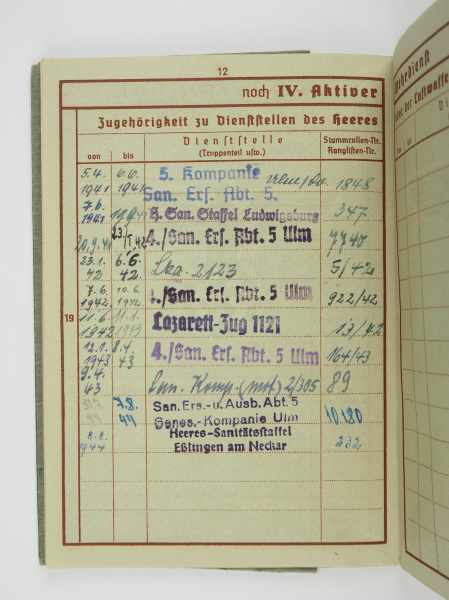 12
noch IV. Aktiver
Zugehörigkeit zu Dienststellen des Heeres
von bis Dienststelle (Truppenteil usw.) Stammrollen-Nr. Ranglisten-Nr.
5.4. 1941 6.6. 1941 5. Kompanie San. Ers. Abt. 5. Ulm/Do. 1848
7.6. 1941 H. San. Staffel Ludwigsburg 247
20.9.41 4./San. Ers. Abt. 5 Ulm 7740
23.1. 42 6.6. 42. 2123 5/42
7.6. 1942 10.6. 1942 ./San. Ers. Abt. 5 Ulm 922/42
19 11.6. 1942 11.1. 1943 Lazarett-Zug 1121 13/42
12.1. 1943 8.4. 43 4./San. Ers. Abt. 5 Ulm 164/43
9.4. 43 San. Komp. (mot) 2/305 89
7.8. 44 San.Ers.-u.Ausb.Abt.5
Genes.-Kompanie Ulm 10180
8.8. 1944 Heeres-Sanitätsstaffel 232
Eßlingen am Neckar
Wehrdienst
der Luftwaffe